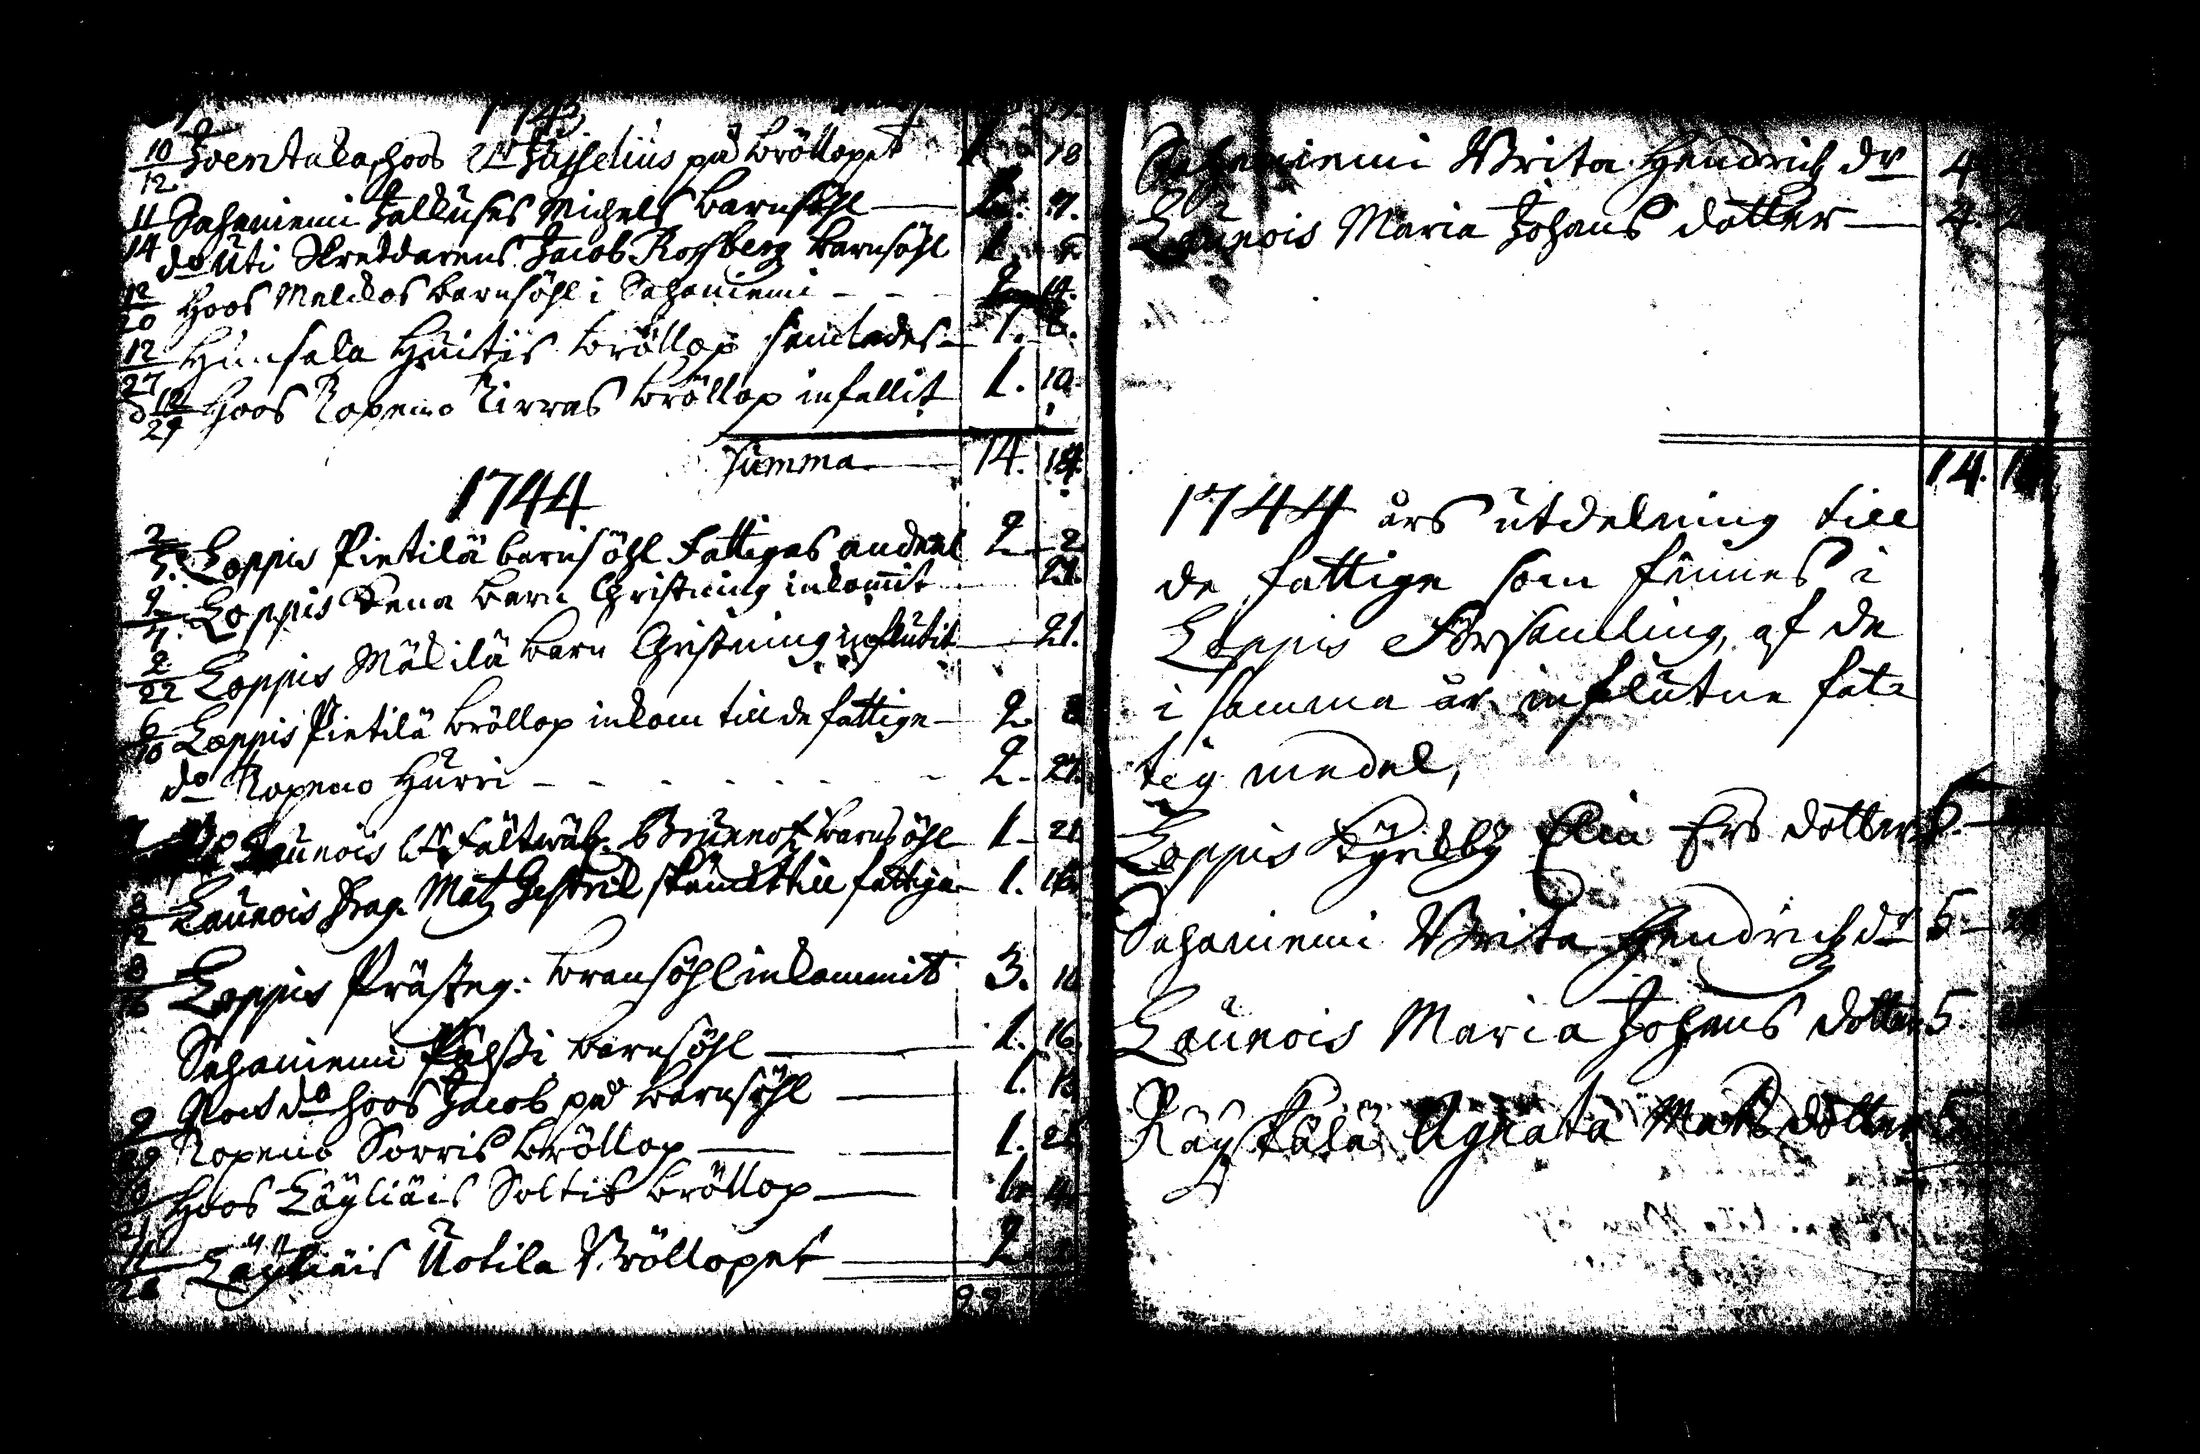 1743
10/12 Joentaka hoos Hr Jusselius på bröllopet 18
11 Sajaniemi Jalkuses Michels barnsöhl 7.
14 do uti Skreddarens Jacob Rosberg barnsöhl 1.
12/20 Hoos Melckos barnsöhl i Sajaniemi 2. 14.
12/27 Hunsala Huitis bröllop samlades 1. 8.
d 12/29 Hoos Kopeno Kirras bröllop infallit 1. 10.
Summa 14. 14
1744
Loppis Pietilä barnsöhl Fattigas andeel 2 2
Loppis Sena barn Christning inkommit 21.
2/22 Loppis Mäkilä barn Christning influtit 21.
6/10 Loppis Pietilä bröllop inkom till de fattige 2. 8
do Kopeno Hurri 2. 27.
Launois Fältwäb. Brunnos barnsöhl 1 21
Launois Drag. Matz Gestril skänckt till fattiga 1. 16
Loppis Prästeg: branssöhl inkommit 3. 18
Sajaniemi Pussi barnsöhl 1. 16.
Noch do hoos Jacob på barnsöhl 1.
Kopeno Sorris bröllop 1.
Hoos Läyliäis Soltis bröllop 1.
Läyliäis Uotila Bröllopet 2
22
Sajaniemi Brita Hendrichz dr 4
Launois Maria Johans dotter 4.
14.
1744 års utdelning till
de fattige som finnes i
Loppis Församling, af de
i samma år influtne fat-
tig medel,
Loppis Kyrkby Elin Ers dotter
Sajaniemi Brita Hendrichz dr 5
Launois Maria Johans dotter 5.
Räyskälä Agnata Mats dotter 5